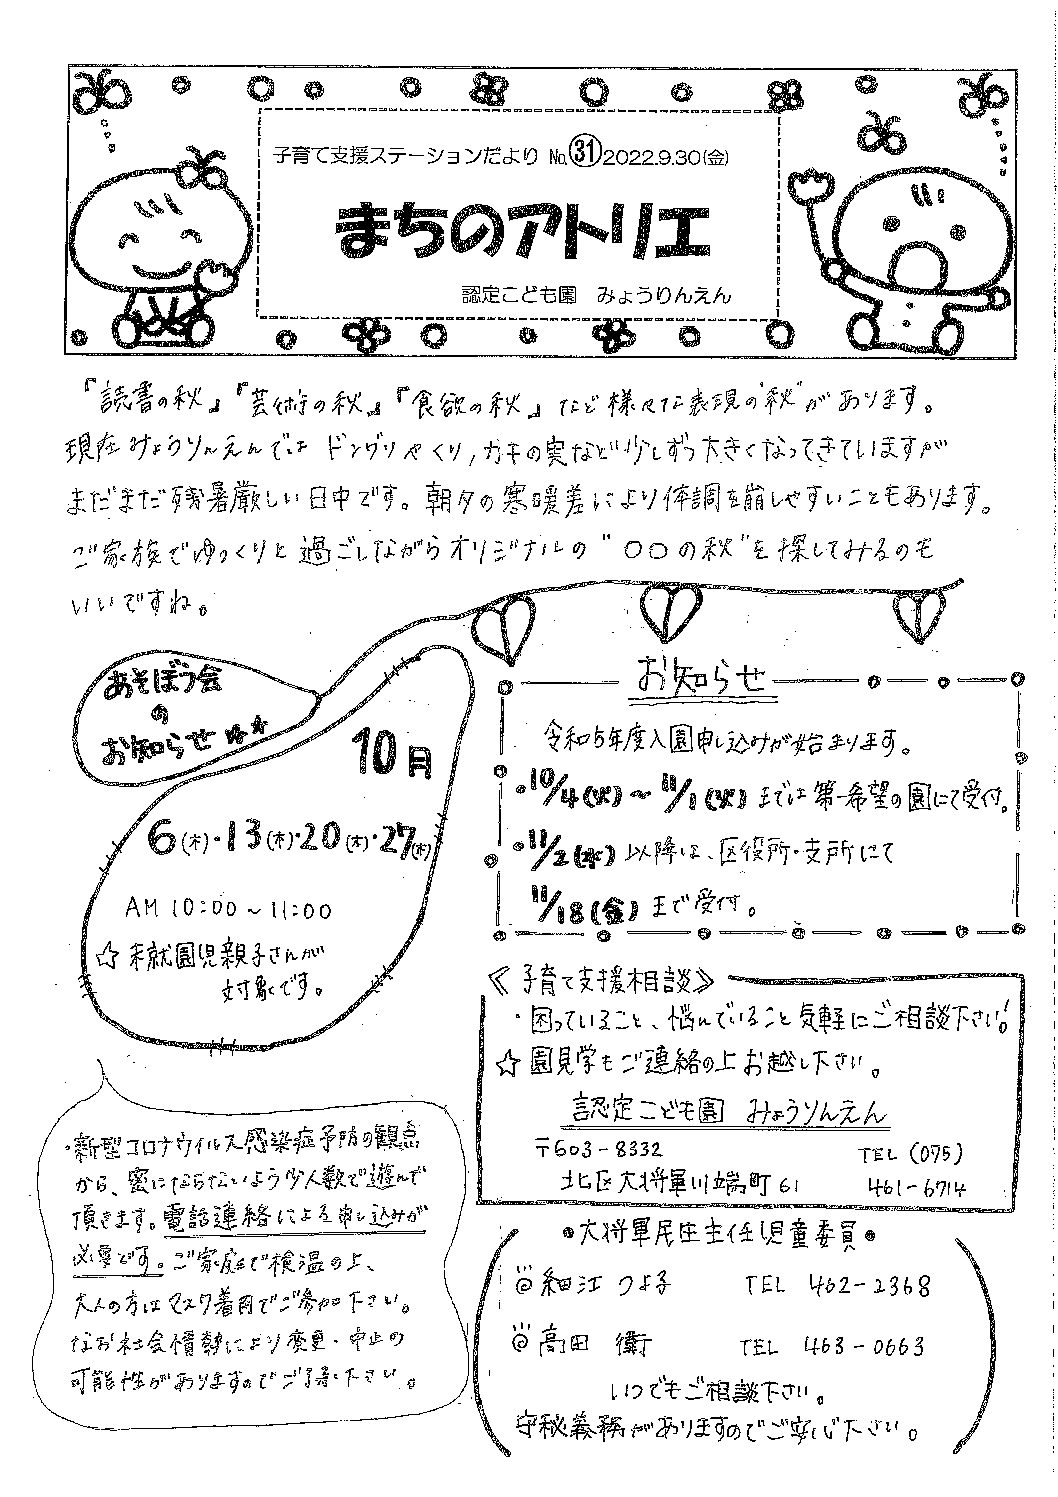 子育て支援ステーションだより No.㉛2022.9.30(金)
まちのアトリエ
認定こども園 みょうりんえん
『読書の秋』『芸術の秋』『食欲の秋』など様々な表現の"秋"があります。
現在みょうりんえんでは ドングリやくり,カキの実など少しずつ大きくなってきていますが
まだまだ残暑厳しい日中です。朝夕の寒暖差により体調を崩しやすいこともあります。
ご家族でゆっくりと過ごしながらオリジナルの"○○の秋"を探してみるのも
いいですね。
あそぼう会
の
お知らせ
10月
6(木)・13(木)・20(木)・27(木)
AM 10:00～11:00
☆未就園児親子さんが
対象です。
・新型コロナウイルス感染症予防の観点
から、密にならないよう少人数で遊んで
頂きます。電話連絡による申し込みが
必要です。ご家庭で検温の上、
大人の方はマスク着用でご参加下さい。
なお社会情勢により変更・中止の
可能性がありますのでご了承下さい。
お知らせ
令和5年度入園申し込みが始まります。
・10/4(火)～11/1(火)までは第一希望の園にて受付。
・11/2(水)以降は、区役所・支所にて
11/18(金)まで受付。
《子育て支援相談》
・困っていること、悩んでいること気軽にご相談下さい!
☆園見学もご連絡の上お越し下さい。
認定こども園 みょうりんえん
〒603-8332 TEL (075)
北区大将軍川端町61 461-6714
●大将軍民生主任児童委員●
◎細江 つよ子 TEL 462-2368
◎高田 衛 TEL 463-0663
いつでもご相談下さい。
守秘義務がありますのでご安心下さい。